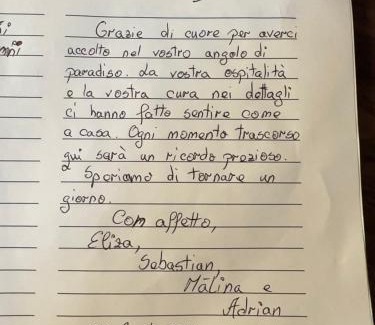 Grazie di cuore per averci
accolto nel vostro angolo di
paradiso. La vostra ospitalità
e la vostra cura nei dettagli
ci hanno fatto sentire come
a casa. Ogni momento trascorso
qui sarà un ricordo prezioso.
Speriamo di tornare un
giorno.
Com affetto,
Eliza,
Sebastian,
Mălina e
Adrian